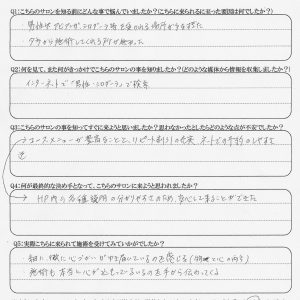 Q1:こちらのサロンを知る前にどんな事で悩んでいましたか?(こちらに来られるに至った要因は何でしたか?)
男性が
夕方から施術してくれる所が
Q2:何を見て、また何がきっかけでこちらのサロンの事を知りましたか?(どのような媒体から情報を収集しましたか?)
インターネットで「男性・シロダーラ」で検索
Q3:こちらのサロンの事を知ってすぐに来ようと思いましたか?思わなかったとしたらどのような点が不安でしたか?
コースメニューが豊富なことと、リピート割引の充実 ネットでの予約のしやすさ
Q4:何が最終的な決め手となって、こちらのサロンに来ようと思われましたか?
HP内の各種説明の分かりやすさのため、安心して来ることができた
Q5:実際こちらに来られて施術を受けてみていかがでしたか?
・細い所に心づかいがゆき届いているのを感じる
・施術も本当に心が込もっているのを手から伝わってくる